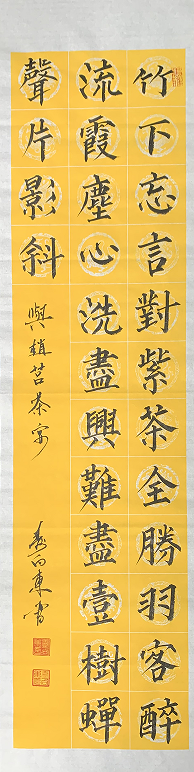 竹下忘言對紫茶全勝羽客醉
流霞塵心洗盡興難盡壹樹蟬
聲片影斜
與趙莒茶宴